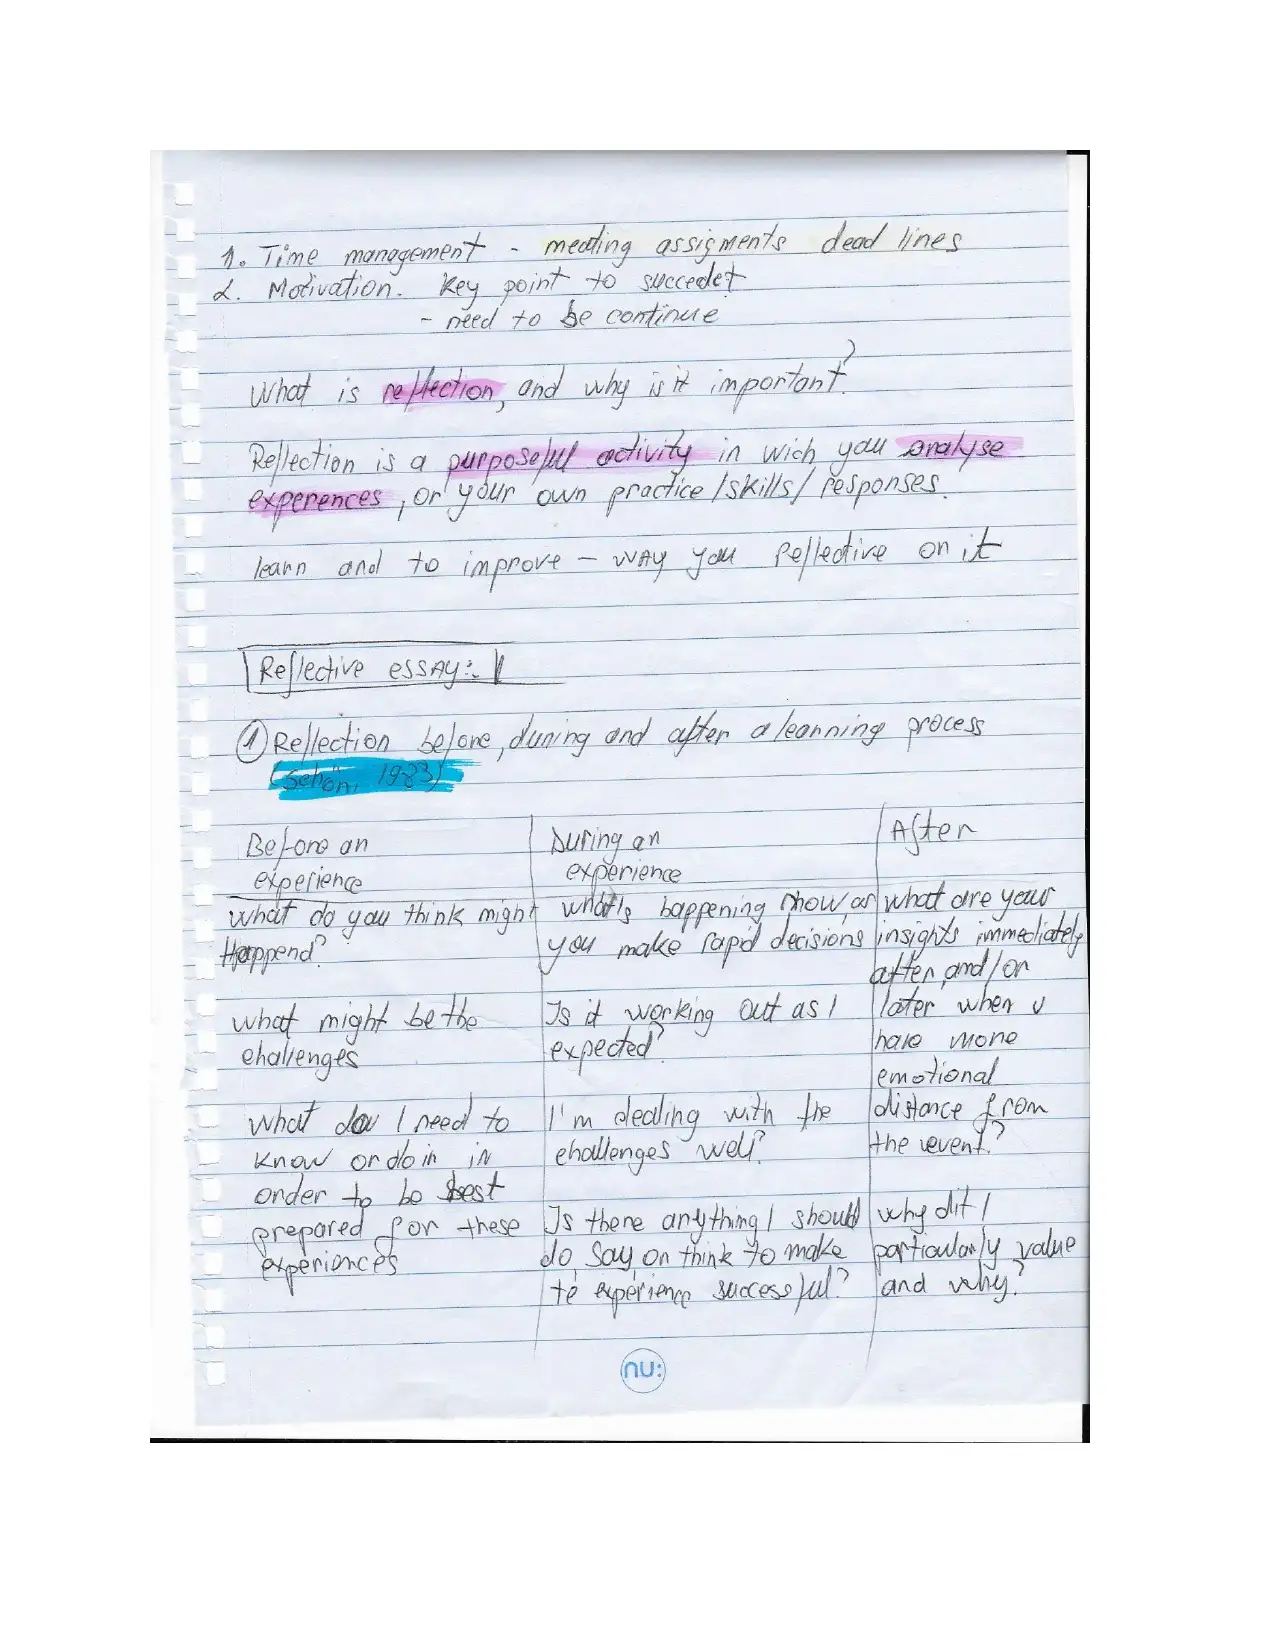 1. Time management - meating assigments dead lines
2. Motivation. Key point to succedet
- need to be continue
What is reflection, and why is it important?
Reflection is a purposeful activity in wich you analyse
experences, or your own practice /skills/ responses.
learn and to improve - WAY you Reflective on it
Reflective ESSAY:.
1 Reflection before, during and after a learning process
(Schön, 1983)
Before an
experience
What do you think might
Happend?
What might be the
challenges
What do I need to
know or do in in
order to be best
prepared for these
experiences
During an
experience
what's happening now, as
you make rapid decisions
Is it working out as I
expected?
I'm dealing with the
challenges well?
Is there anything I should
do, say, or think to make
te experience successful?
After
what are your
insights immediately
after, and/or
later when u
have more
emotional
distance from
the event?
why dit I
particularly value
and why?
nu: